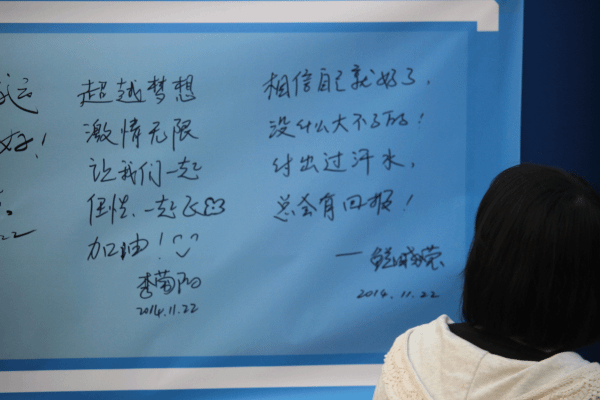 好!
22
超越梦想
激情无限
让我们一起
一起飞
加油!
2014.11.22
相信自己就好了,
没什么大不了的!
付出过汗水,
总会有回报!
2014.11.22